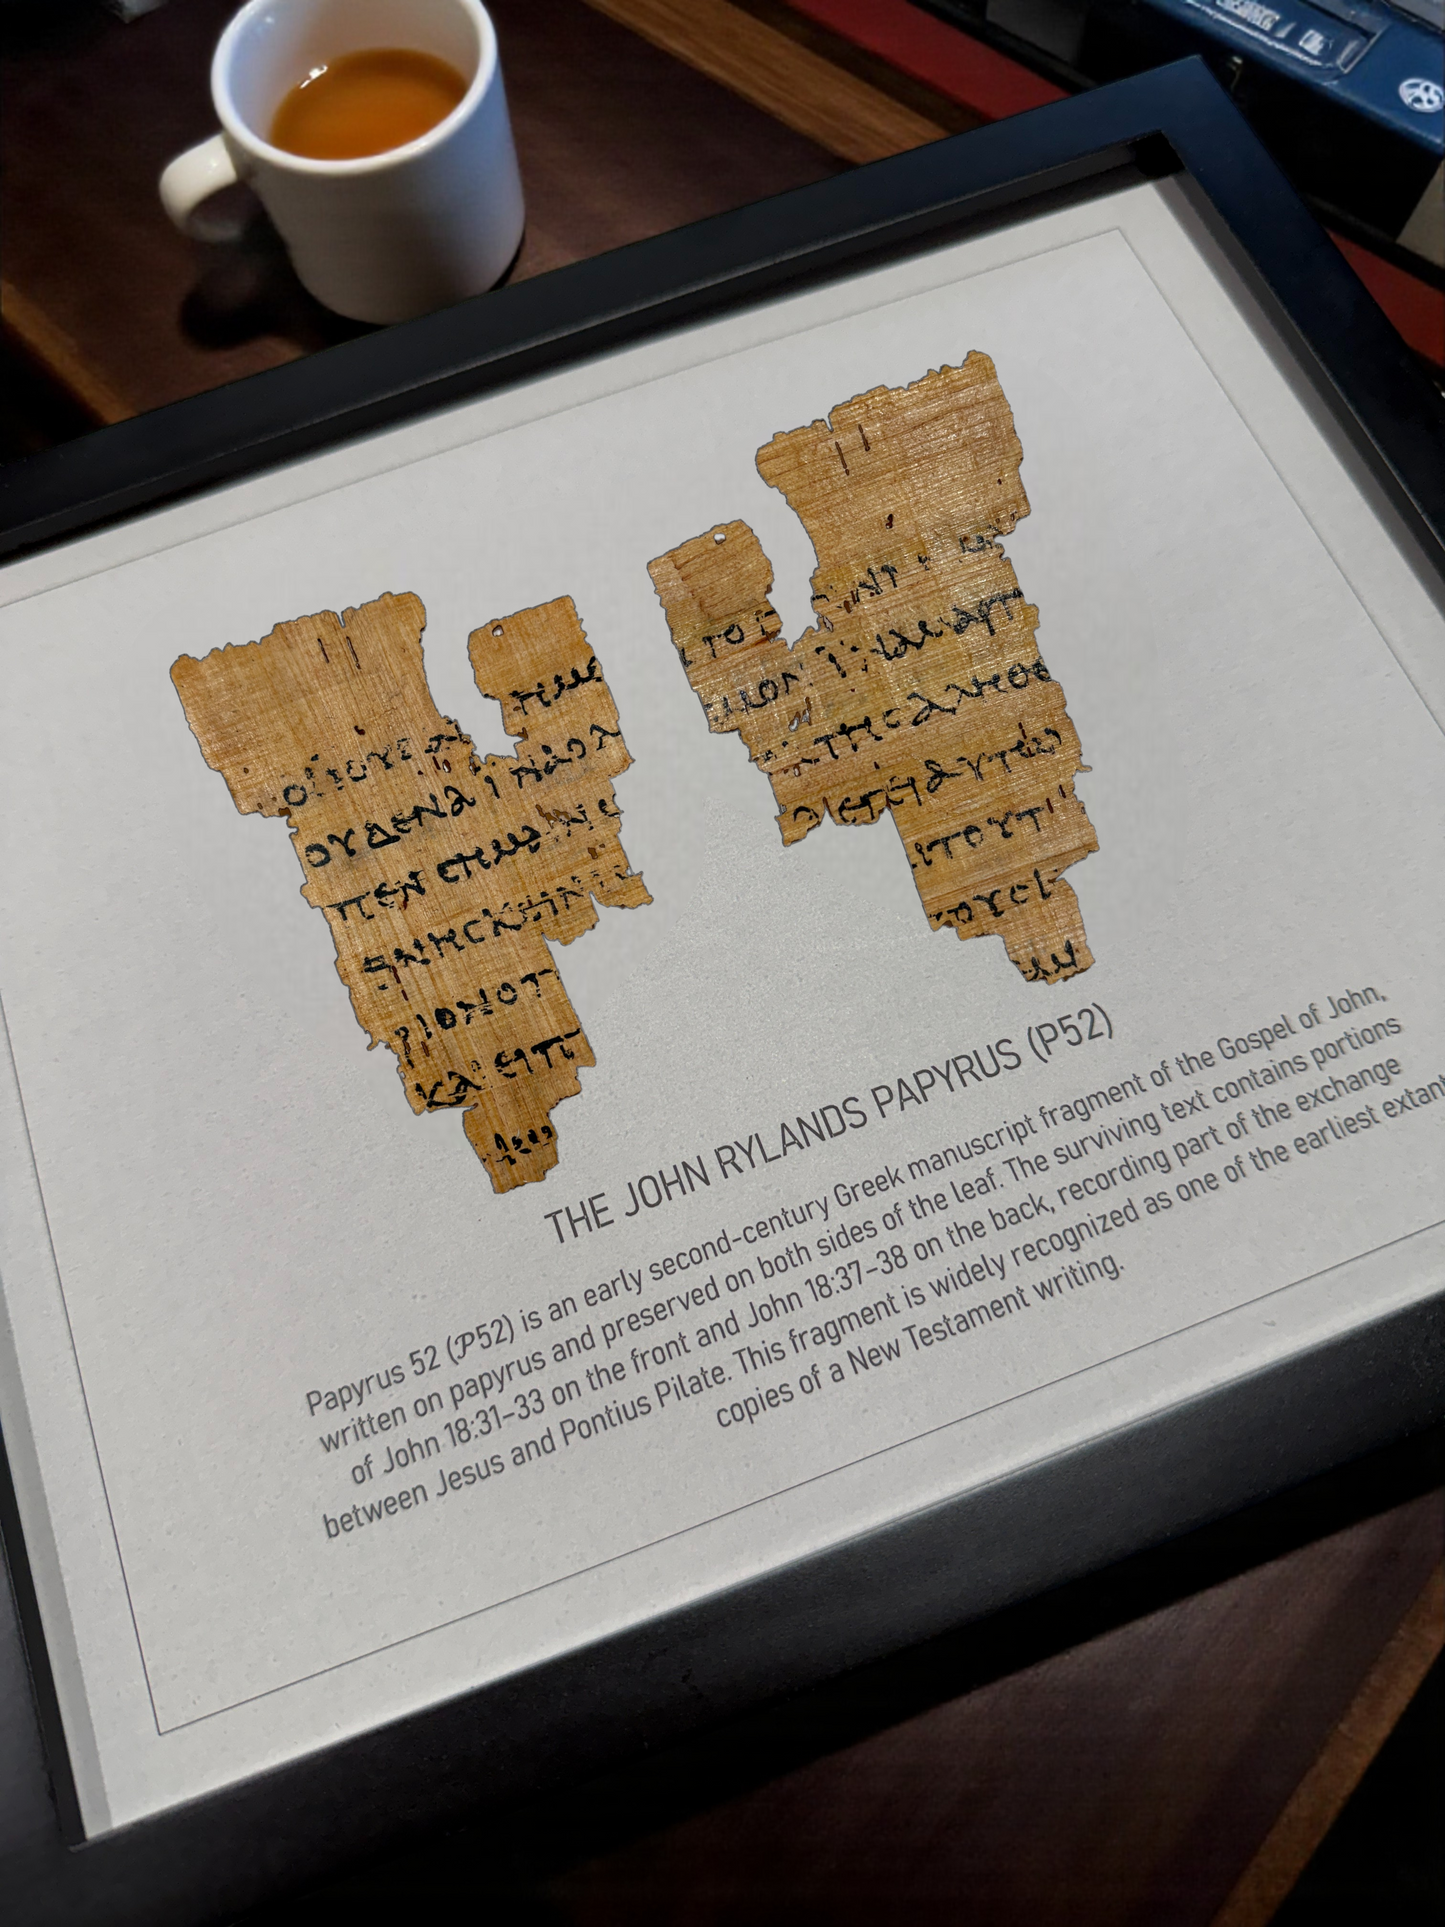 ΟΙ ΙΟΥΔΑΙ ΗΜΕ
ΟΥΔΕΝΑ ΙΝΑ Ο Λ
ΠΕΝ ΣΗΜΑΙΝΩ
ΘΝΗΣΚΕΙΝ ΙΣ
ΡΙΟΝ Ο Π
ΚΑΙ ΕΙΠ
ΤΟ Γ
ΣΜΟΝ ΙΝΑ ΜΑΡΤΥ
ΕΚ ΤΗΣ ΑΛΗΘΕ
ΛΕΓΕΙ ΑΥΤΩ
ΤΟΥΤ
ΤΟΥΣ Ι
ΜΙ
THE JOHN RYLANDS PAPYRUS (P52)
Papyrus 52 (𝒫52) is an early second-century Greek manuscript fragment of the Gospel of John,
written on papyrus and preserved on both sides of the leaf. The surviving text contains portions
of John 18:31–33 on the front and John 18:37–38 on the back, recording part of the exchange
between Jesus and Pontius Pilate. This fragment is widely recognized as one of the earliest extant
copies of a New Testament writing.